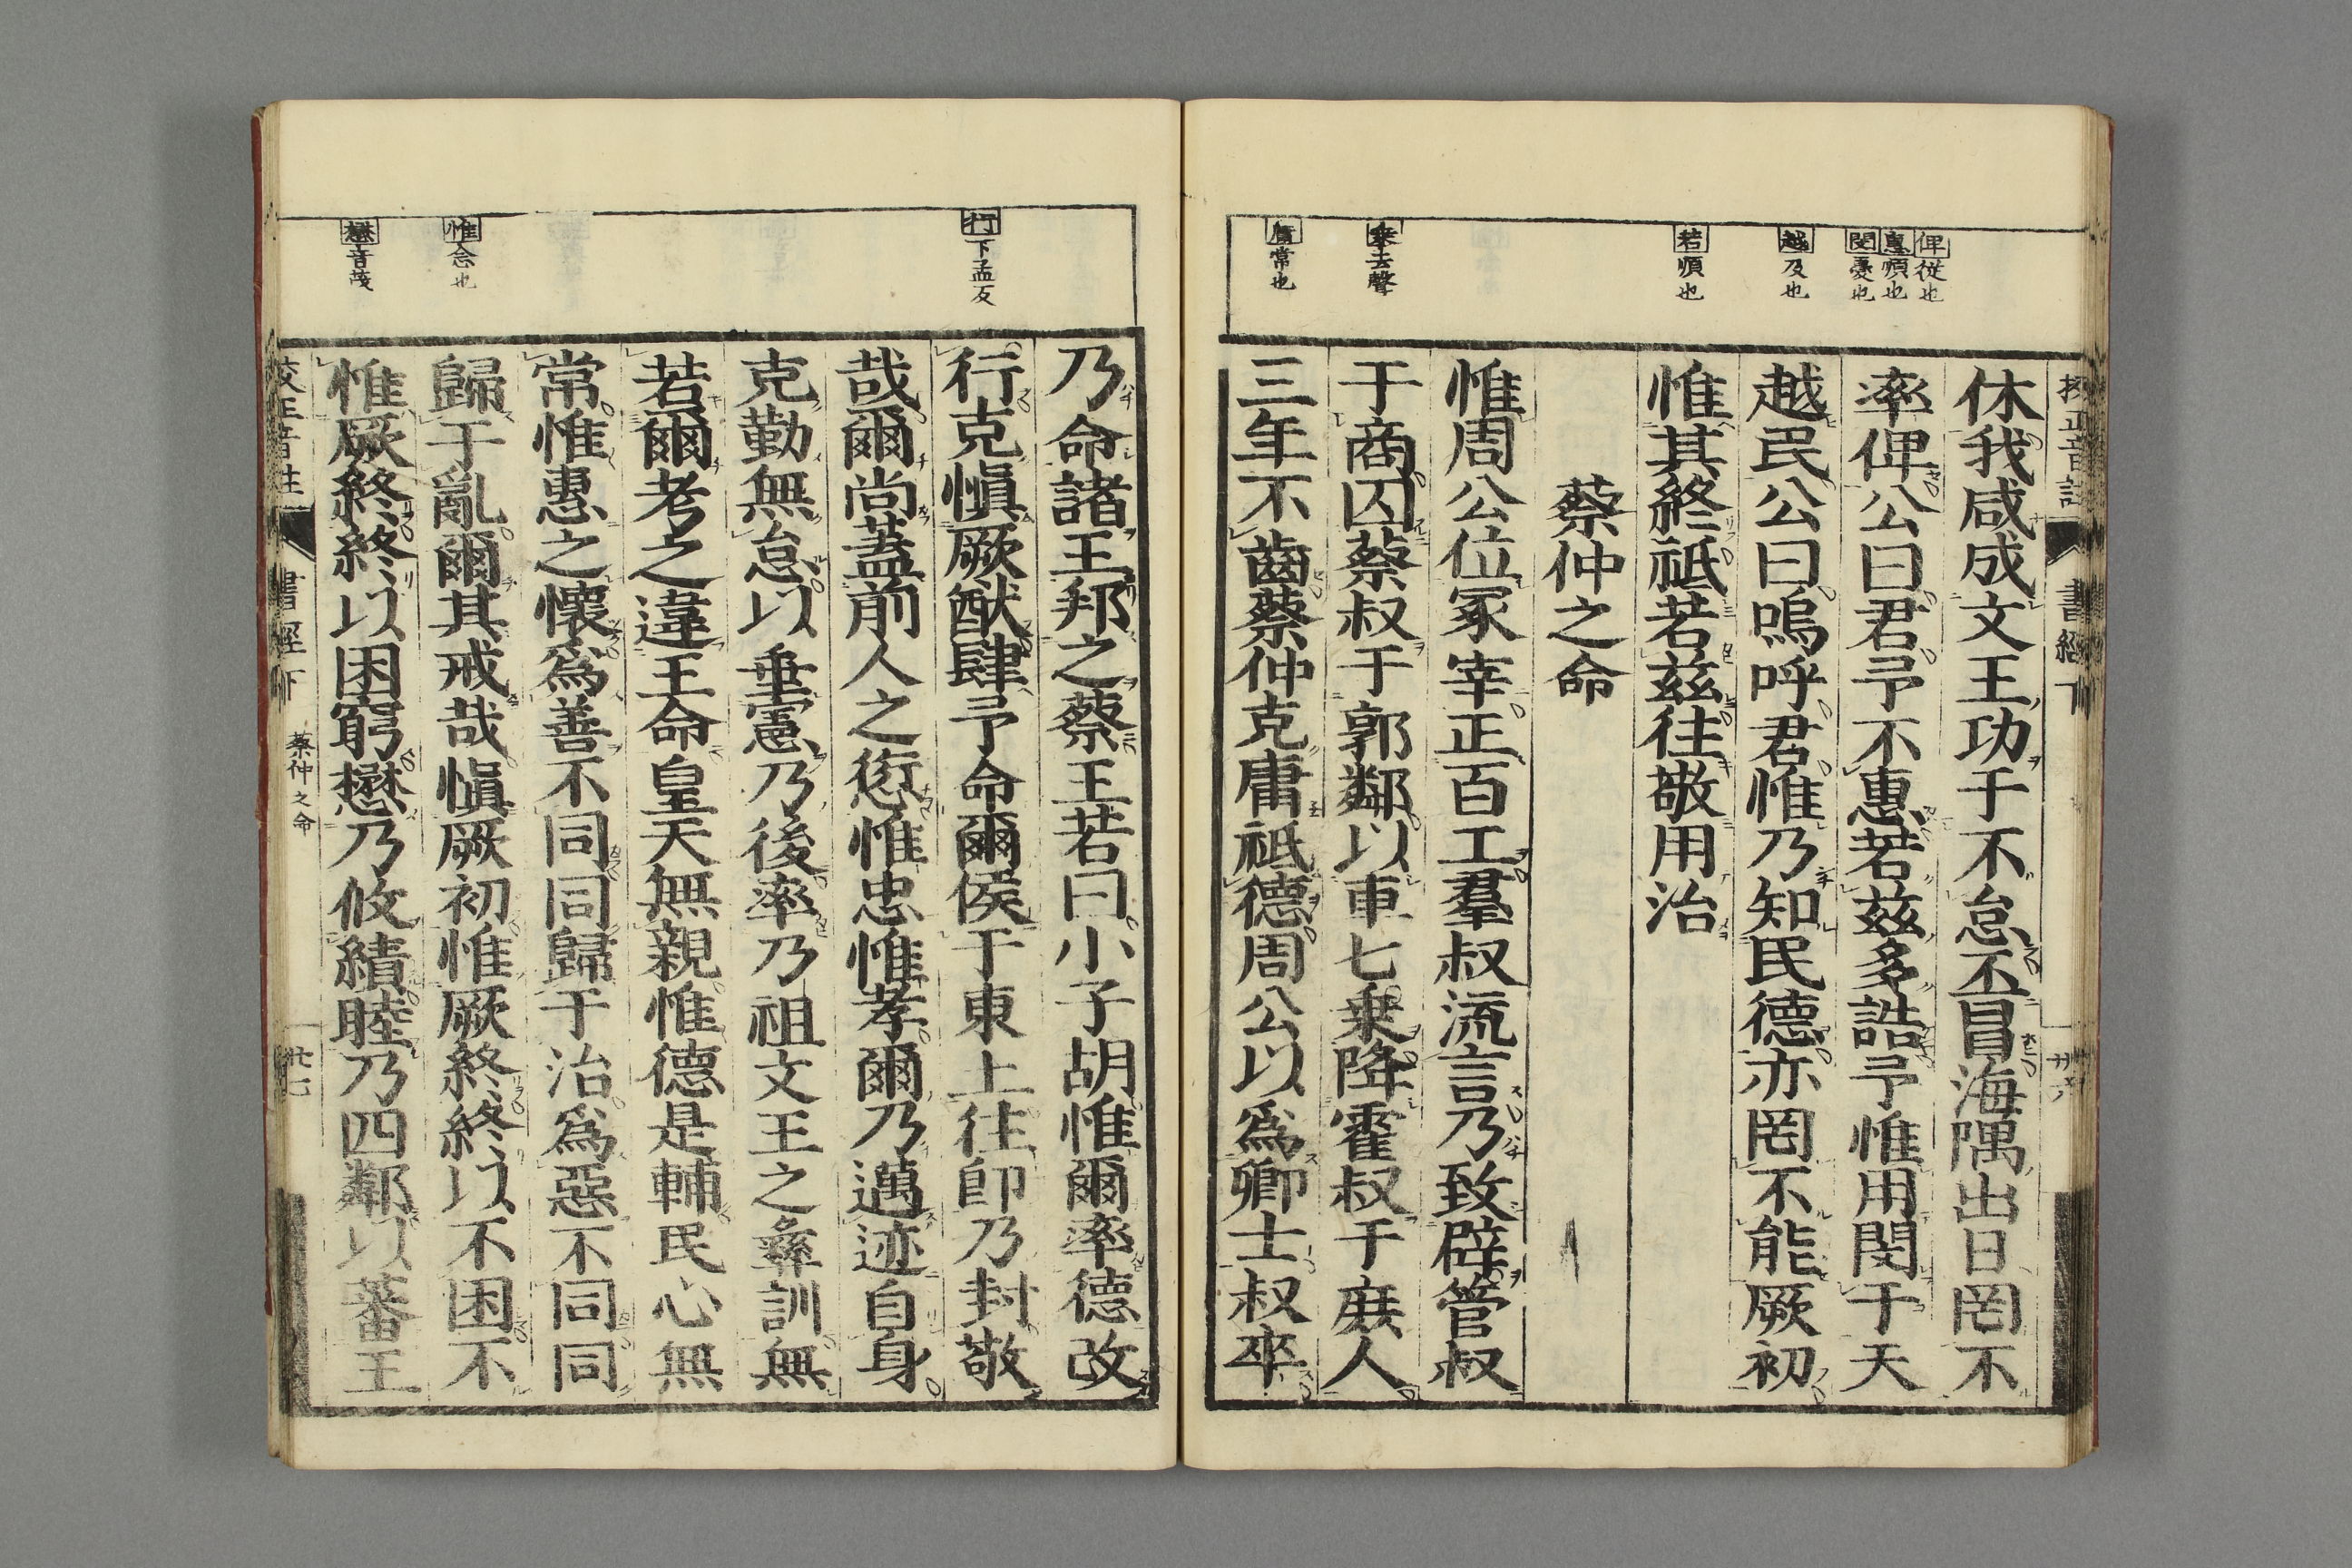 校正音註 書經下 廿六
俾 從也
惠 順也
閔 憂也
越 及也
若 順也
乗 去聲
庸 常也
休我咸成文王功于不怠丕冐海隅出日罔不
率俾公曰君予不惠若兹多誥予惟用閔于天
越民公曰嗚呼君惟乃知民德亦罔不能厥初
惟其終祗若兹徃敬用治
蔡仲之命
惟周公位冢宰正百工羣叔流言乃致辟管叔
于商囚蔡叔于郭鄰以車七乗降霍叔于庶人
三年不齒蔡仲克庸祗德周公以爲卿士叔卒
行 下孟反
惟 念也
懋 音茂
乃命諸王邦之蔡王若曰小子胡惟爾率德改
行克愼厥猷肆予命爾侯于東土徃卽乃封敬
哉爾尚蓋前人之愆惟忠惟孝爾乃邁迹自身
克勤無怠以垂憲乃後率乃祖文王之彝訓無
若爾考之違王命皇天無親惟德是輔民心無
常惟惠之懷爲善不同同歸于治爲惡不同同
歸于亂爾其戒哉愼厥初惟厥終終以不困不
惟厥終終以困窮懋乃攸績睦乃四鄰以蕃王
校正音註 書經下 蔡仲之命 廿七